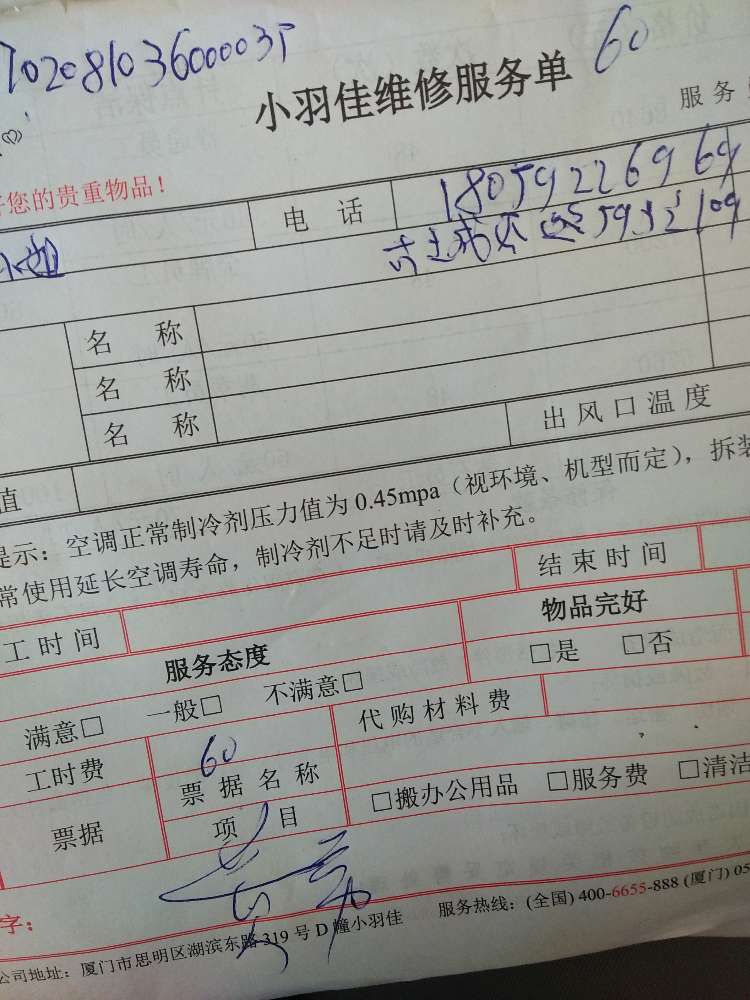 702081036000035
小羽佳维修服务单 60
服务
您的贵重物品！
小姐 电话 18059226969
5912109
名称
名称
名称
值 出风口温度
提示：空调正常制冷剂压力值为0.45mpa（视环境、机型而定），拆装
常使用延长空调寿命，制冷剂不足时请及时补充。
工时间 结束时间
服务态度 物品完好
满意□ 一般□ 不满意□ □是 □否
工时费 60 代购材料费
票据 票据名称 □搬办公用品 □服务费 □清洁
项目
字：
公司地址：厦门市思明区湖滨东路319号D幢小羽佳 服务热线：(全国) 400-6655-888 (厦门) 05